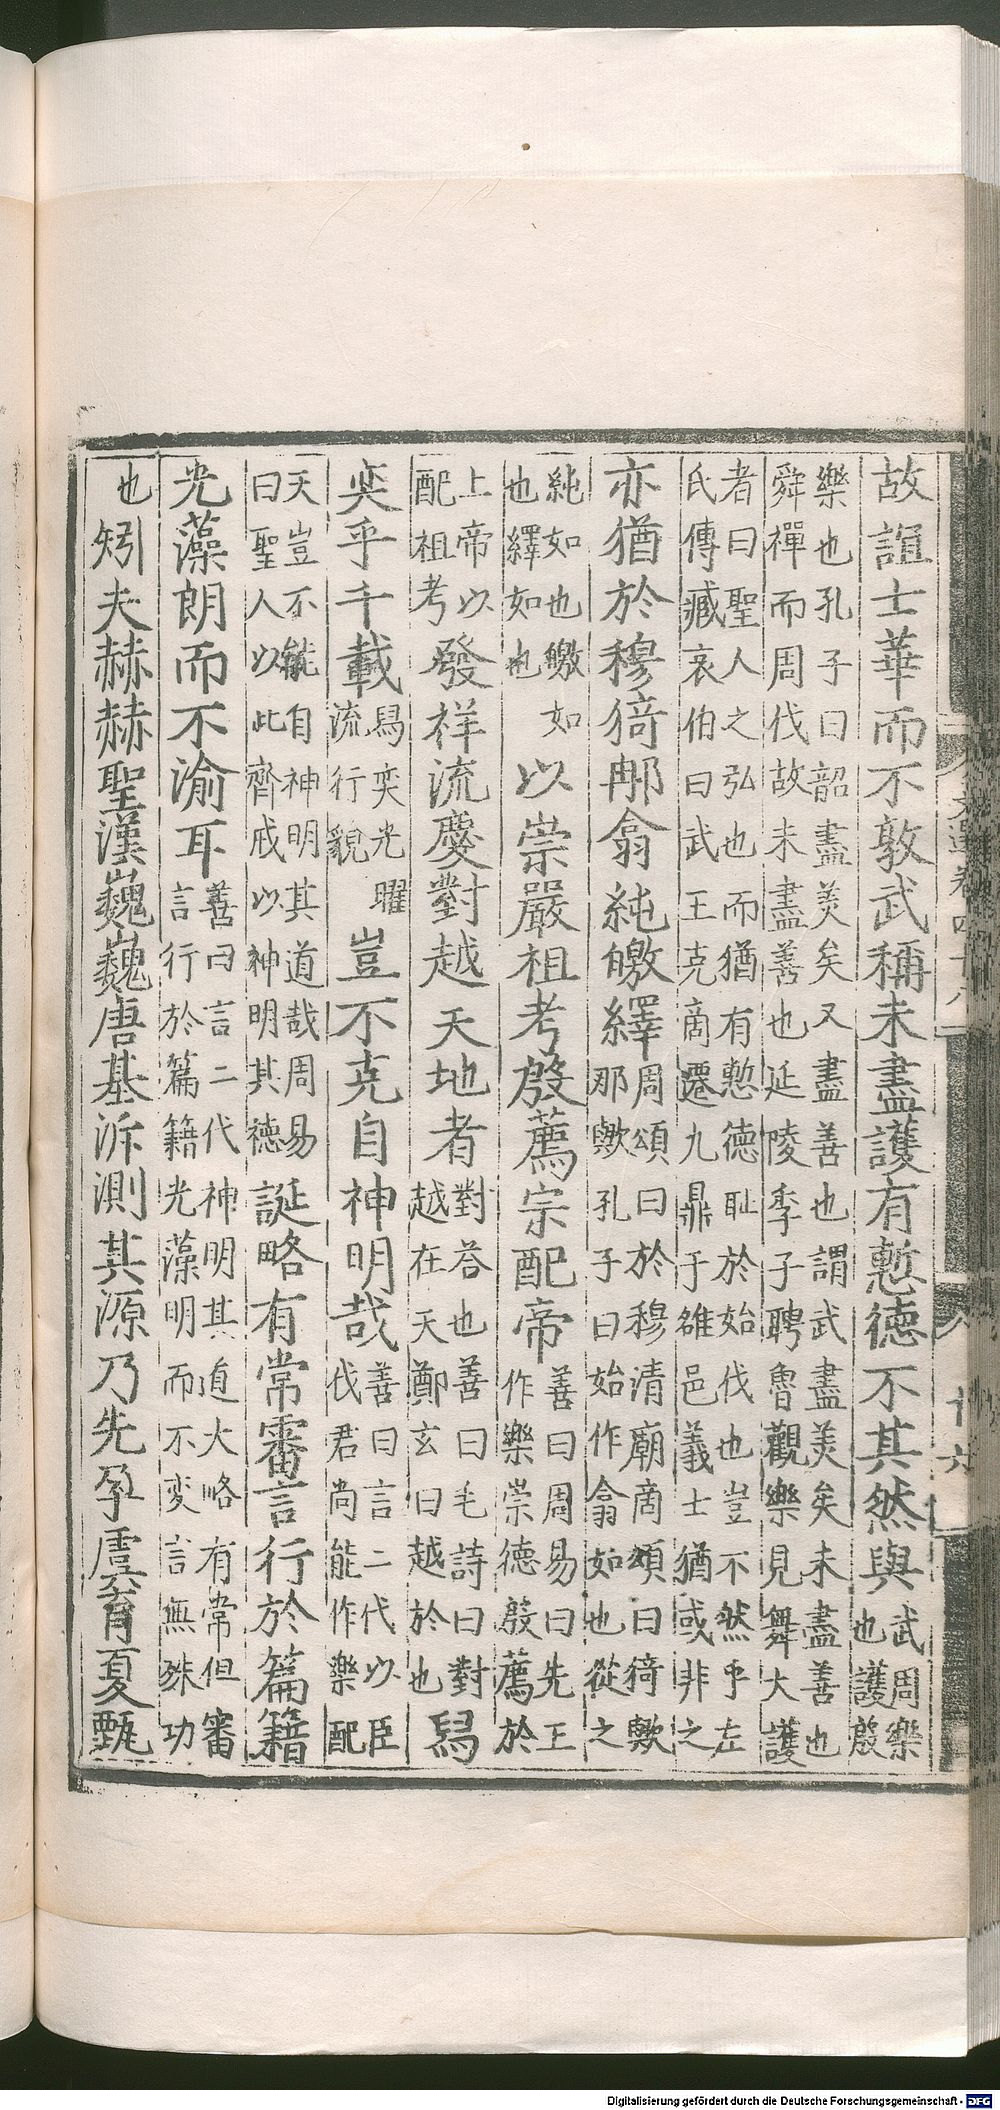 故誼士華而不敦武稱未盡護有慙德不其然與武周樂也護殷
樂也孔子曰韶盡美矣又盡善也謂武盡美矣未盡善也
舜禪而周伐故未盡善也延陵季子聘魯觀樂見舞大護
者曰聖人之弘也而猶有慙德耻於始伐也豈不然乎左
氏傳臧哀伯曰武王克商遷九鼎于雒邑義士猶或非之
亦猶於穆猗那翕純皦繹周頌曰於穆清廟商頌曰猗歟那歟孔子曰始作翕如也從之
純如也皦如也繹如也以崇嚴祖考殷薦宗配帝善曰周易曰先王作樂崇德殷薦於
上帝以配祖考發祥流慶對越天地者對荅也善曰毛詩曰對越在天鄭玄曰越於也舄
奕乎千載舄奕光曜流行貌豈不克自神明哉善曰言二代以臣伐君尚能作樂配
天豈不能自神明其道哉周易曰聖人以此齊戒以神明其德誕略有常審言行於篇籍
光藻朗而不渝耳善曰言二代神明其道大略有常但審言行於篇籍光藻明而不变言無殊功
也矧夫赫赫聖漢巍巍唐基泝測其源乃先孕虞育夏甄
文選卷四十八
Digitalisierung gefördert durch die Deutsche Forschungsgemeinschaft - DFG